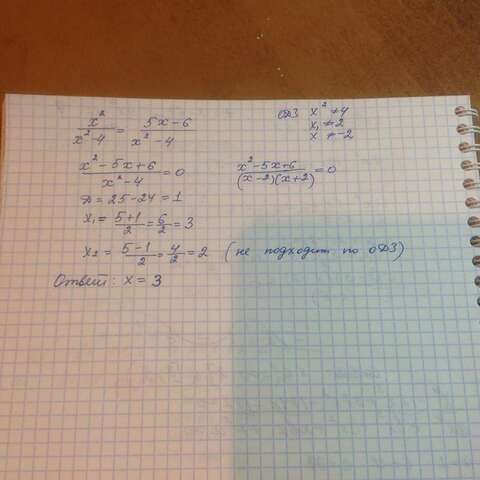 x²/(x²-4) = (5x-6)/(x²-4)
ОДЗ x² ≠ 4
x₁ ≠ 2
x ≠ -2
(x²-5x+6)/(x²-4) = 0
(x²-5x+6)/((x-2)(x+2)) = 0
Д = 25-24 = 1
x₁ = (5+1)/2 = 6/2 = 3
x₂ = (5-1)/2 = 4/2 = 2 (не подходит по ОДЗ)
Ответ: x = 3